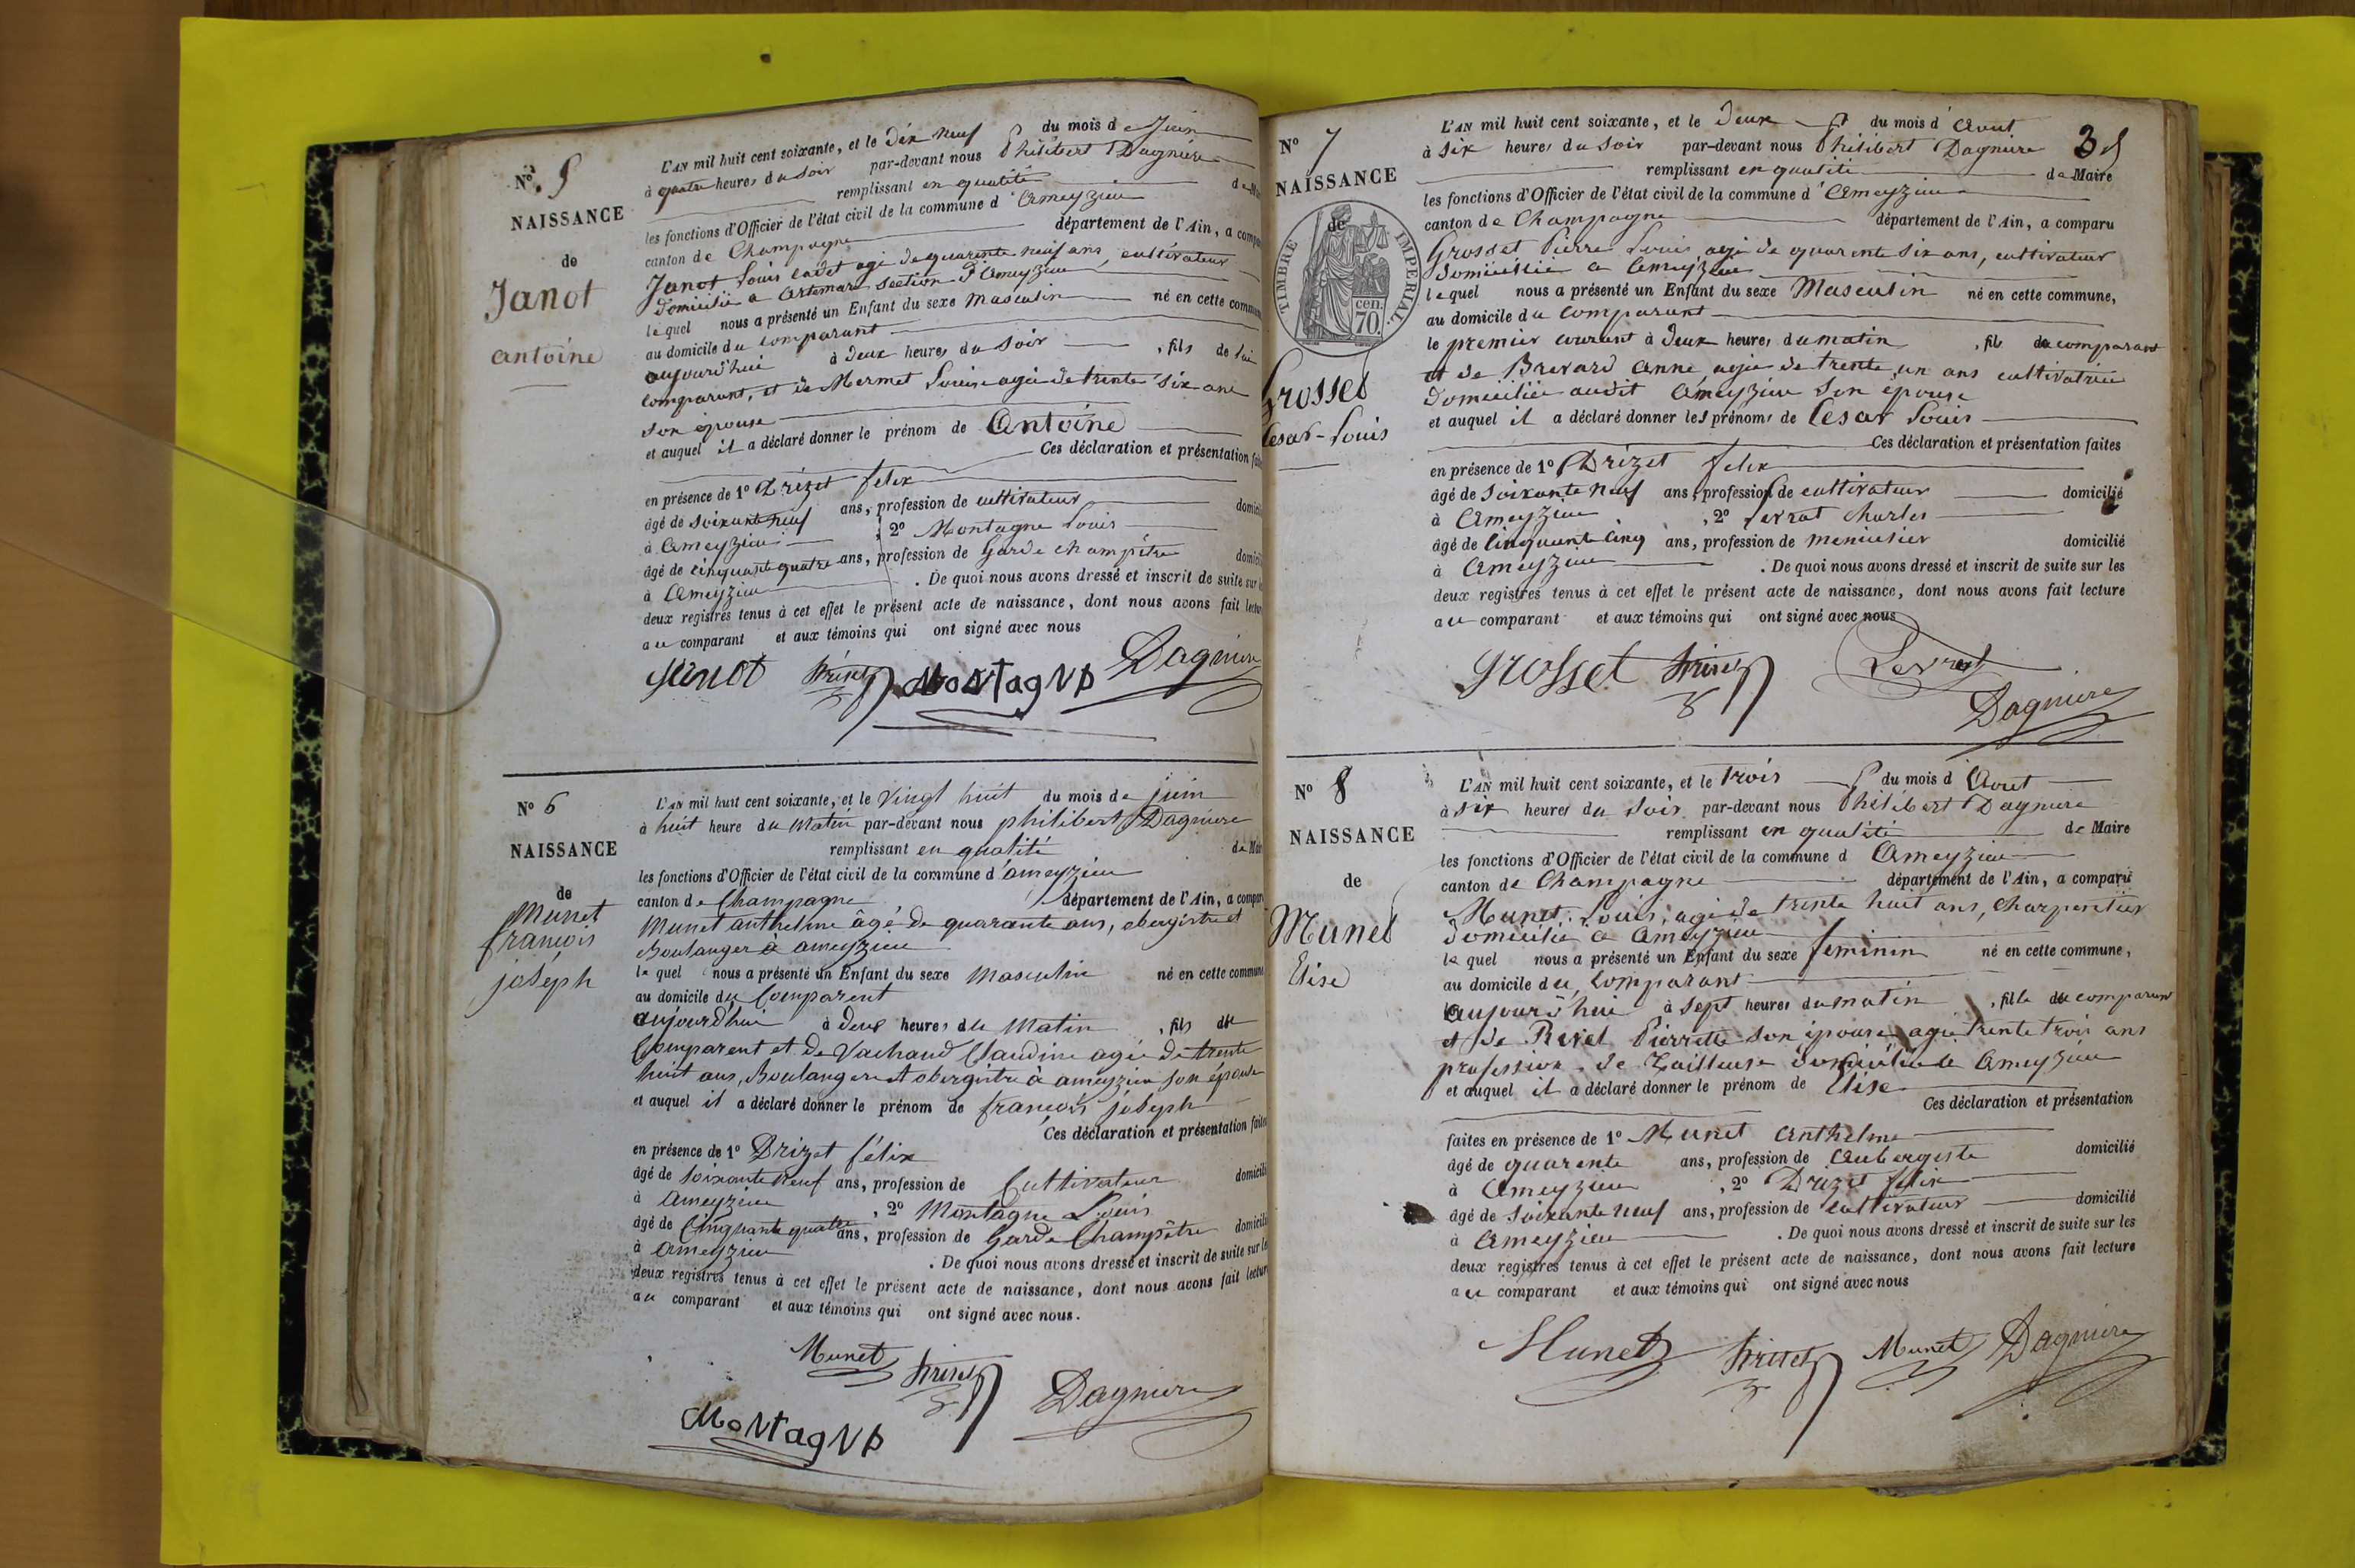 N° 5
NAISSANCE
de
Janot
antoine
L'AN mil huit cent soixante, et le dix neuf du mois de Juin
à quatre heures du soir par-devant nous Philibert Dagniere
remplissant en qualité de
les fonctions d'Officier de l'état civil de la commune d'Ameyzieu
canton de Champagne département de l'Ain, a
Janot Louis cadet agé de quarente neuf ans, cultivateur
domicilié a Artemare section d'Ameyzieu
lequel nous a présenté un Enfant du sexe Masculin né en cette
au domicile du comparant
aujourd'hui à deux heures du soir , fils de lui
comparant, et de Mermet Louise agée de trente six ans
son épouse
et auquel il a déclaré donner le prénom de Antoine
Ces déclaration et présentation
en présence de 1° Drizet felix
âgé de soixante neuf ans, profession de cultivateur
à Ameyzieu , 2° Montagne Louis
âgé de cinquante quatre ans, profession de Garde champêtre
à Ameyzieu . De quoi nous avons dressé et inscrit de suite sur
deux registres tenus à cet effet le présent acte de naissance, dont nous avons fait
au comparant et aux témoins qui ont signé avec nous
Janot Drizet MoNTagNe Dagniere
N° 6
NAISSANCE
de
Munet
françois
joseph
L'AN mil huit cent soixante, et le vingt huit du mois de juin
à huit heure du Matin par-devant nous philibert Dagniere
remplissant en qualité de
les fonctions d'Officier de l'état civil de la commune d'ameyzieu
canton de Champagne département de l'Ain, a
Munet anthelme âgé de quarante ans, obergistre et
Boulanger à ameyzieu
lequel nous a présenté un Enfant du sexe Masculin né en cette commune
au domicile du Comparent
aujourd'hui à deux heures du Matin , fils du
Comparent et de Vachand Claudine agée de trente
huit ans, Boulangere et obergistre à ameyzieu son épouse
et auquel il a déclaré donner le prénom de françois joseph
Ces déclaration et présentation faites
en présence de 1° Drizet félix
âgé de soixante neuf ans, profession de Cultivateur
à ameyzieu , 2° Montagne Louis
âgé de Cinquante quatre ans, profession de Garde Champêtre
à ameyzieu . De quoi nous avons dressé et inscrit de suite sur
deux registres tenus à cet effet le présent acte de naissance, dont nous avons fait
au comparant et aux témoins qui ont signé avec nous.
Munet Drizet Dagniere
MoNTagNe
N° 7
NAISSANCE
de
TIMBRE IMPERIAL
cen.
70
Grosset
Cesar-Louis
35
L'AN mil huit cent soixante, et le deux du mois d'Aout
à six heures du soir par-devant nous Philibert Dagniere
remplissant en qualité de Maire
les fonctions d'Officier de l'état civil de la commune d'Ameyzieu
canton de Champagne département de l'Ain, a comparu
Grosset Pierre Louis agé de quarente six ans, cultivateur
domicilié a Ameyzieu
lequel nous a présenté un Enfant du sexe Masculin né en cette commune,
au domicile du comparant
le premier courant à deux heures du matin , fils du comparant
et de Brevard Anne agée de trente un ans cultivatrice
domiciliée audit Ameyzieu son épouse
et auquel il a déclaré donner les prénoms de Cesar Louis
Ces déclaration et présentation faites
en présence de 1° Drizet felix
âgé de soixante neuf ans, profession de cultivateur domicilié
à Ameyzieu , 2° Levrat charles
âgé de cinquante cinq ans, profession de menuisier domicilié
à Ameyzieu . De quoi nous avons dressé et inscrit de suite sur les
deux registres tenus à cet effet le présent acte de naissance, dont nous avons fait lecture
au comparant et aux témoins qui ont signé avec nous
Grosset Drizet Levrat
Dagniere
N° 8
NAISSANCE
de
Munet
Elise
L'AN mil huit cent soixante, et le trois du mois d Aout
à six heures du soir par-devant nous Philibert Dagniere
remplissant en qualité de Maire
les fonctions d'Officier de l'état civil de la commune d Ameyzieu
canton de Champagne département de l'Ain, a comparu
Munet Louis, agé de trente huit ans, charpentier
domicilié a Ameyzieu
lequel nous a présenté un Enfant du sexe feminin né en cette commune,
au domicile du comparant
aujourd'hui à sept heures du matin , fille du comparant
et de Revel Pierrette son épouse, agée trente trois ans
profession de Tailleuse domiciliée a Ameyzieu
et auquel il a déclaré donner le prénom de Elise
Ces déclaration et présentation
faites en présence de 1° Munet Anthelme
âgé de quarente ans, profession de Aubergiste domicilié
à Ameyzieu , 2° Drizet felix
âgé de soixante neuf ans, profession de cultivateur domicilié
à Ameyzieu . De quoi nous avons dressé et inscrit de suite sur les
deux registres tenus à cet effet le présent acte de naissance, dont nous avons fait lecture
au comparant et aux témoins qui ont signé avec nous
Munet Drizet Munet Dagniere